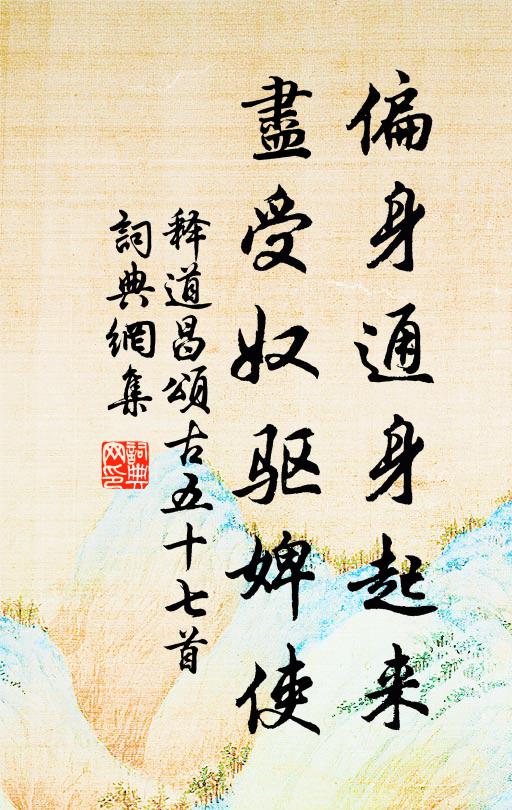 偏身通身起来
盡受奴驱婢使
释道昌頌古五十七首
詞典網集
詞典網印